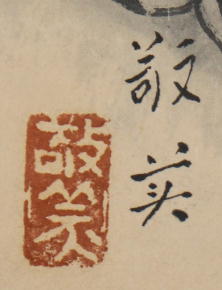 敬英
敬英